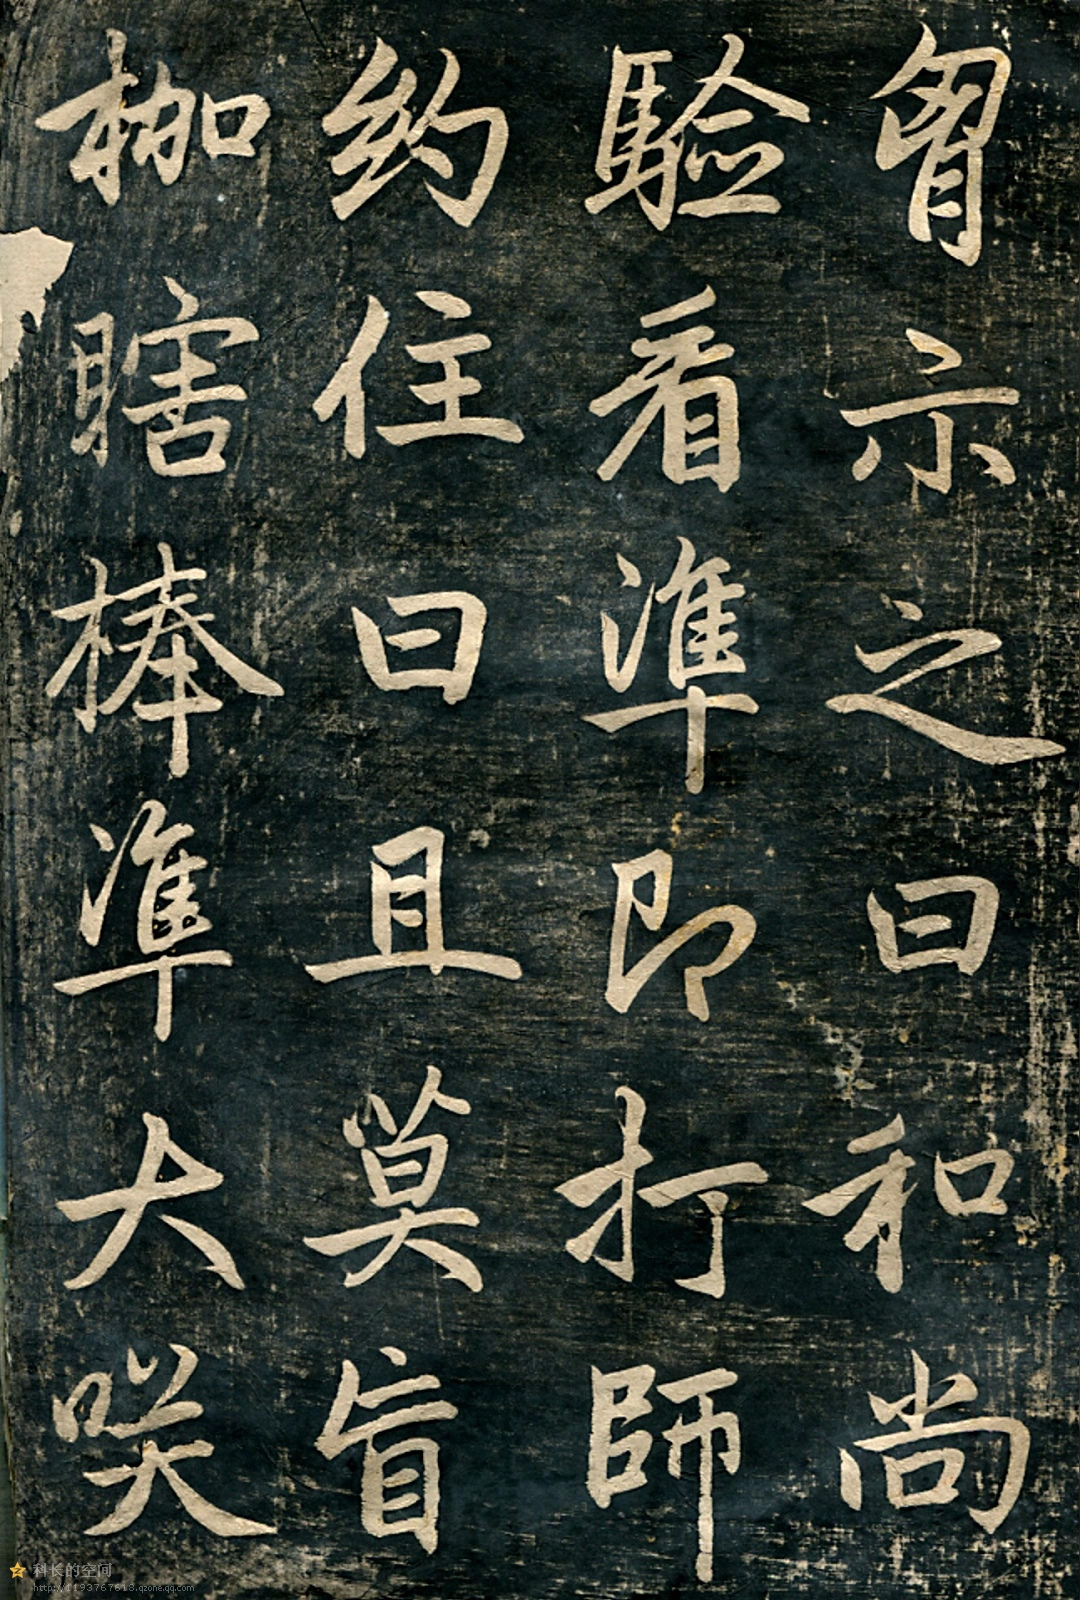 胷示之曰和尚
驗看準即打師
約住曰且莫盲
枷瞎棒準大𠯁
科长的空间
http://1193767618.qzone.qq.com